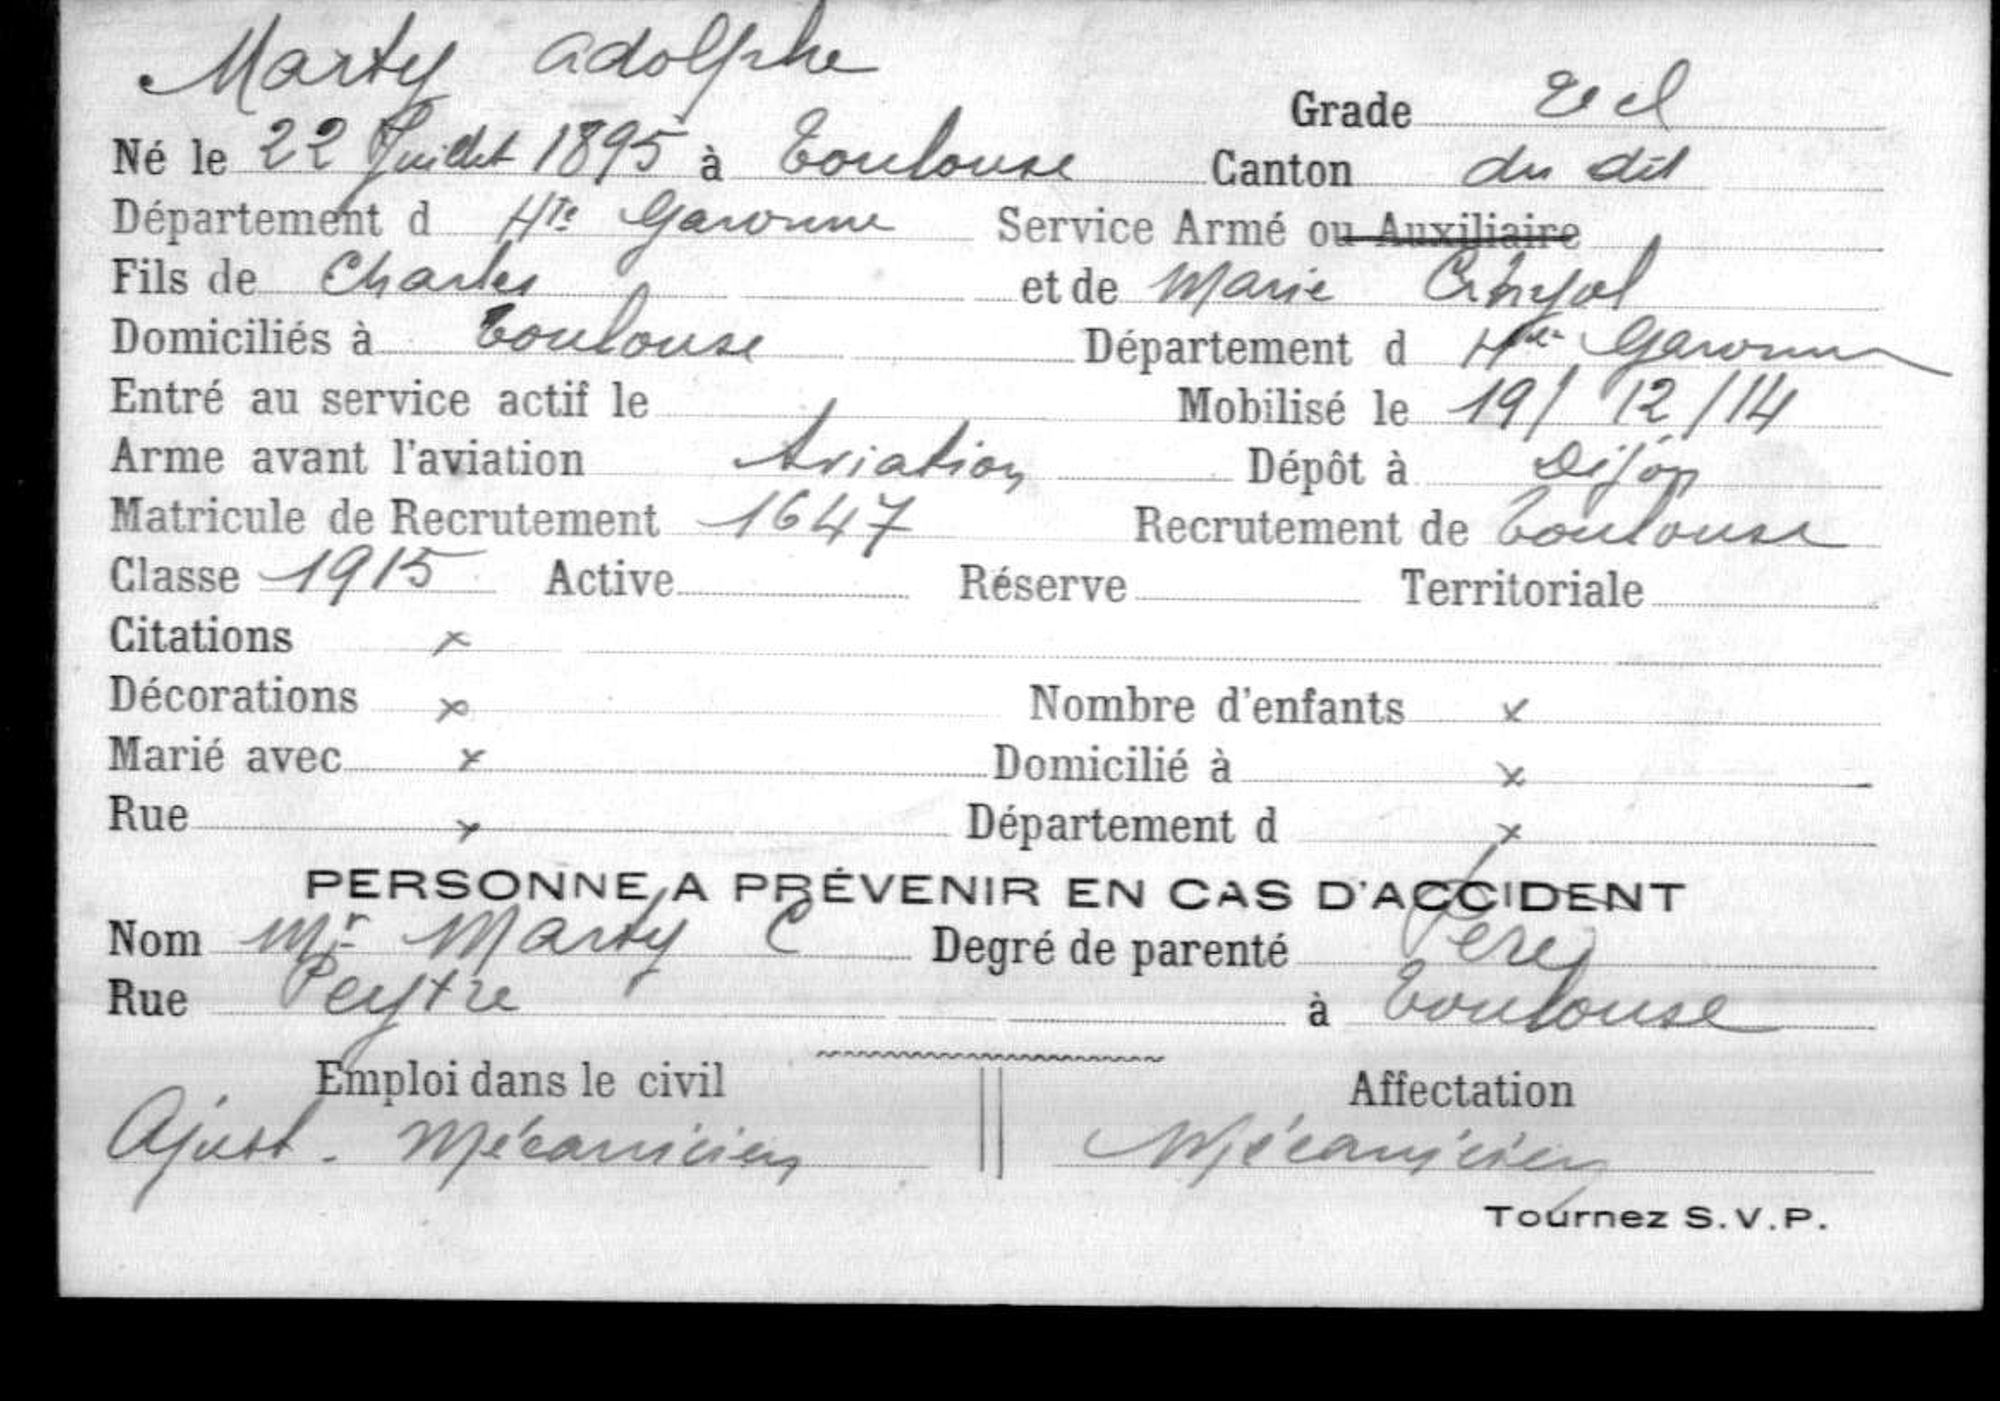 Marty Adolphe
Grade 2e cl
Né le 22 Juillet 1895 à Toulouse Canton du dit
Département d Hte Garonne Service Armé ou Auxiliaire
Fils de Charles et de Marie
Domiciliés à Toulouse Département d Hte Garonne
Entré au service actif le Mobilisé le 19/12/14
Arme avant l'aviation Aviation Dépôt à Dijon
Matricule de Recrutement 1647 Recrutement de Toulouse
Classe 1915 Active Réserve Territoriale
Citations x
Décorations x Nombre d'enfants x
Marié avec x Domicilié à x
Rue x Département d x
PERSONNE A PRÉVENIR EN CAS D'ACCIDENT
Nom Mr Marty C Degré de parenté Père
Rue Peytre à Toulouse
Emploi dans le civil Affectation
Ajust. Mécanicien Mécanicien
Tournez S.V.P.